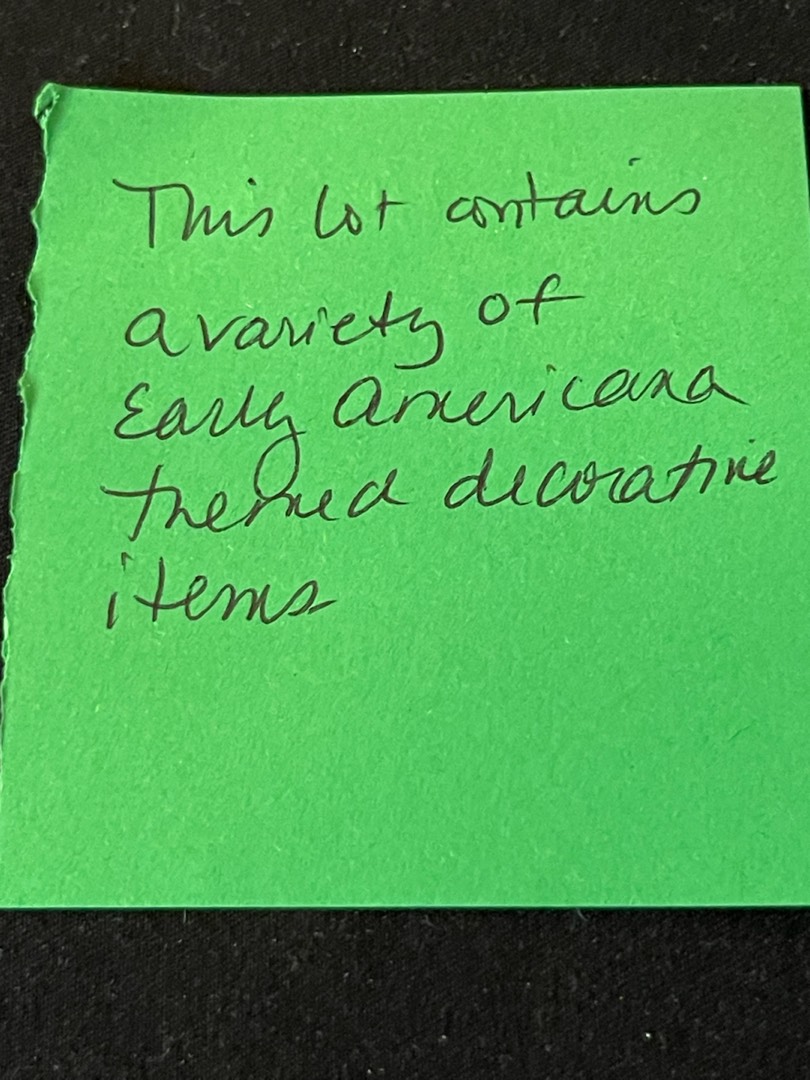 This lot contains
a variety of
Early Americana
themed decorative
items